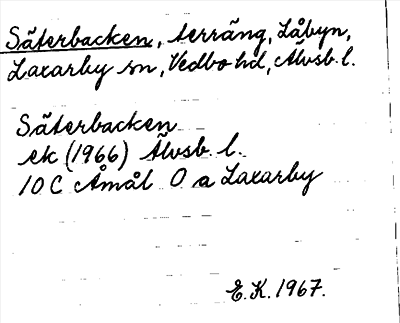 Säterbacken, terräng, Låbyn,
Laxarby sn, Vedbo hd, Älvsb. l.
Säterbacken
ek (1966) Älvsb. l.
10 C Åmål O a Laxarby
E.K. 1967.